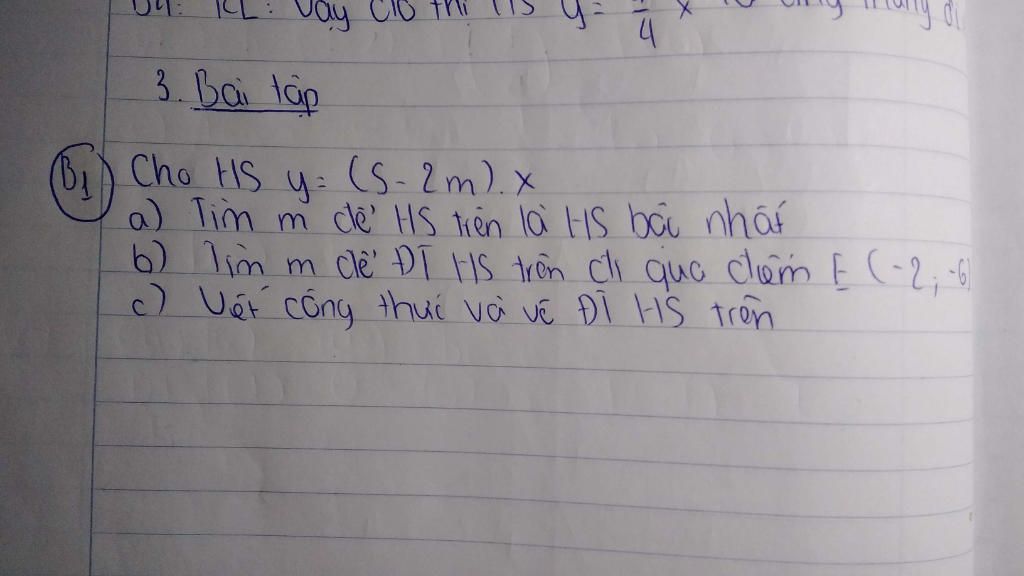 KL: Vậy thị HS y = /4 x
3. Bài tập
B1 Cho HS y = (5 - 2m).x
a) Tìm m để HS trên là HS bậc nhất
b) Tìm m để ĐT HS trên đi qua điểm E (-2; -6)
c) Viết công thức và vẽ ĐT HS trên